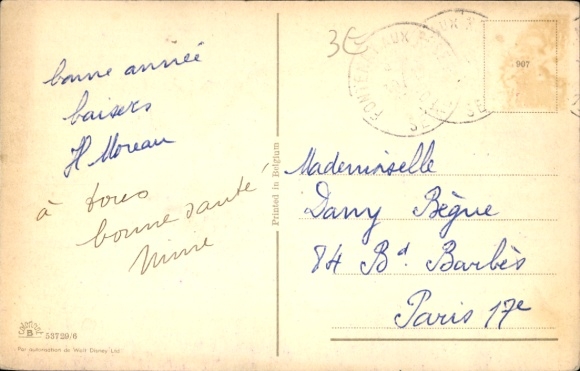 bonne année
baisers
H Moreau
à tous
bonne santé
3€
FONTENAY AUX ROSES
907
Printed in Belgium
Mademoiselle
Dany Bègue
84 Bd Barbès
Paris 17e
B 53729/6
Par autorisation de Walt Disney Ltd